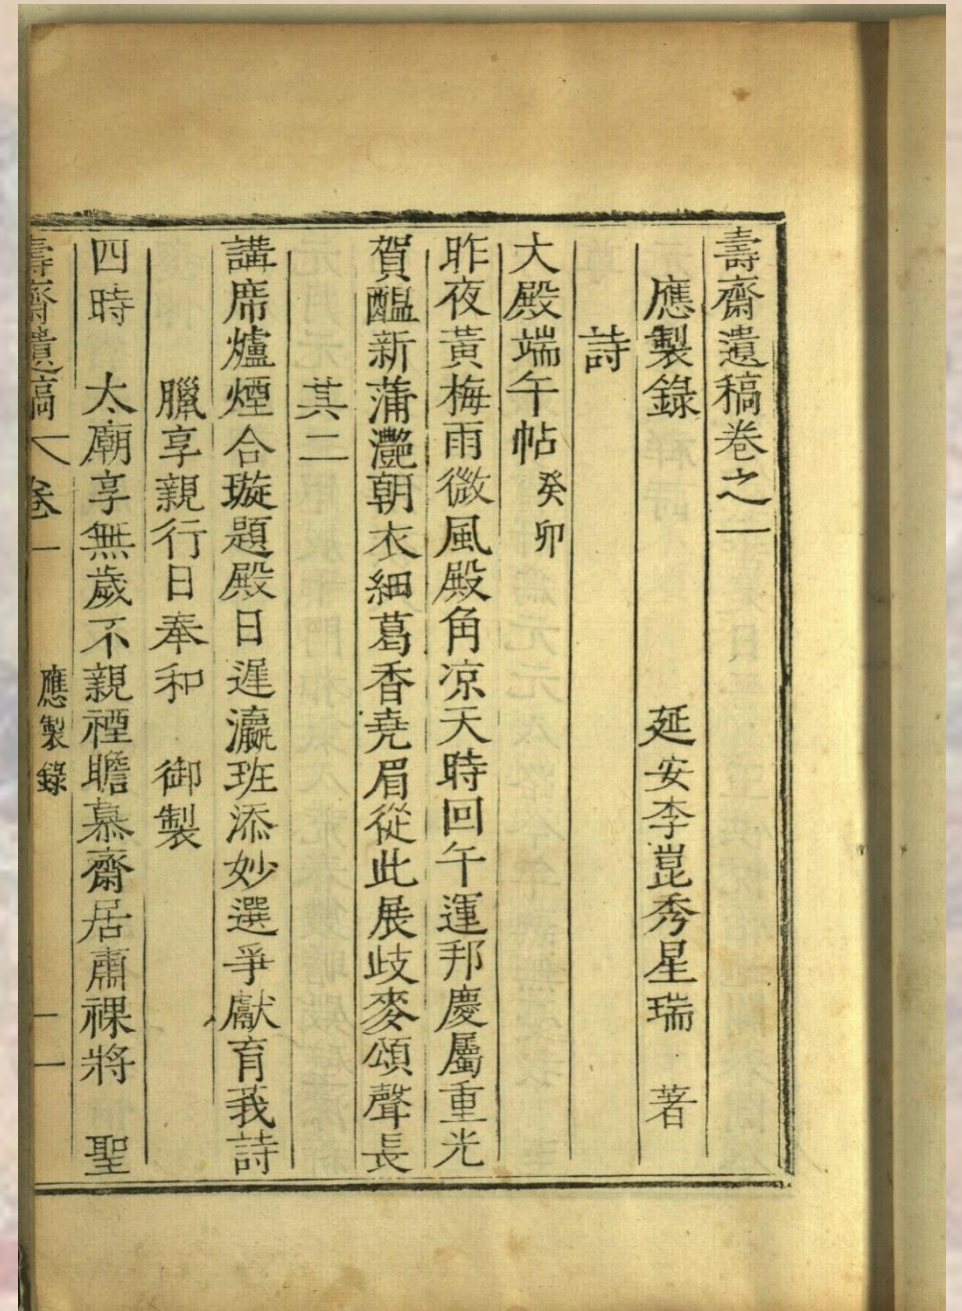 壽齋遺稿卷之一
應製錄 延安李崑秀星瑞 著
詩
大殿端午帖 癸卯
昨夜黃梅雨微風殿角凉天時回午運邦慶屬重光
賀醞新蒲灔朝衣細葛香堯眉從此展歧麥頌聲長
其二
講席爐煙合璇題殿日遲瀛班添妙選爭獻育莪詩
臘享親行日奉和 御製
四時 太廟享無歲不親禋瞻慕齋居肅祼將 聖
壽齋遺稿 卷一 應製錄 一